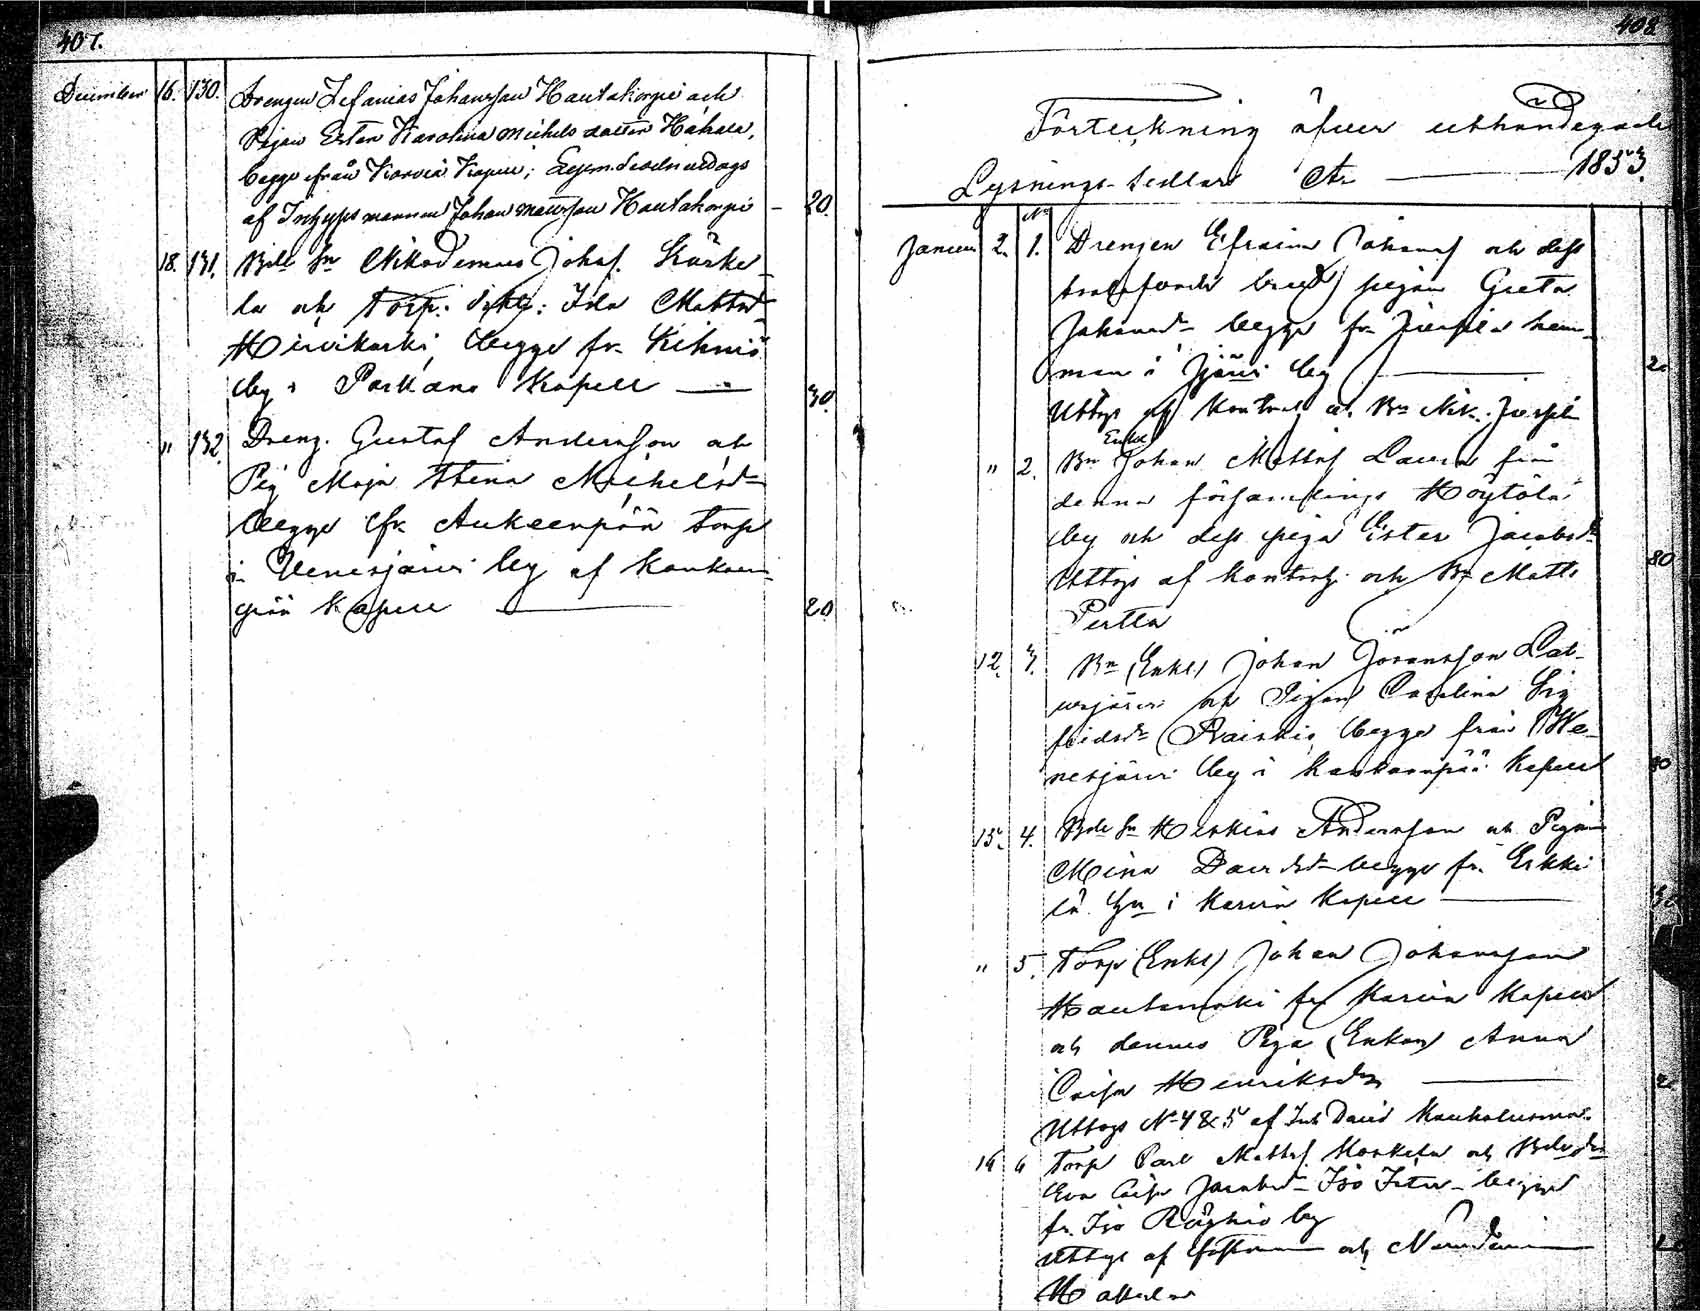 407.
December 16. 130. Drengen Zefanias Johansson Hautakorpi och
Pigan Ester Karolina Michelsdotter Hahala,
begge ifrån Karvia Kapell;
af Inhyses mannen Johan Mattsson Hautakorpi — 20.
18. 131. Bde Sn Nikodemus Johsf. Kärke-
la och Torp. dott: Ida Mattsd
Hirvikoski, begge fr. Kihniö
by i Parkano Kapell — 30.
" 132. Dreng. Gustaf Andersson och
Pig Maja Stina Michelsd
begge fr. Aukeenpää torp
i Venesjärvi by af Kankaan-
pää Kapell — 20.
408.
Förteckning öfver uthändigade
Lysnings-sedlar År — 1853.
No
Januari 2. 1. Drengen Efraim Johansf och dess
trolofvade brud pigan Greta
Johansd begge fr. Juspila hem-
man i Jjärvi by — 20
Uttogs af Kontrah och Bn Nik. Juspila
Enkl
" 2. Bn Johan Mattsf Lauri från
denna församlings Höytölä
by och dess piga Ester Jacobsd
Uttogs af Kontrah. och Bn Matts 80
Pertta
12. 3. Bn (Enkl) Johan Göransson Lat-
vajärvi och Pigan Carolina Sig
fridsd Raiskio, begge från We-
nesjärvi by i Kankaanpää Kapell 80
15. 4. Bde Sn Heskias Andersson och Pigan
Mina Davidsd begge fr. Erkki
lä Hn i Karvia Kapell — 30
" 5. Torp (Enkl) Johan Johansson
Hautamäki fr Karvia Kapell
och dennes Piga (Enkan) Anna
Caisa Henriksdr — 20
Uttogs No 4 & 5 af Inh David Kauhalusma.
16 6 Torp Carl Mattsf. Koskela och Bde dr
Eva Caisa Jacobsd Iso Iter begge
fr. Iso Röyhiö by
Uttogs af och Nämndem 20